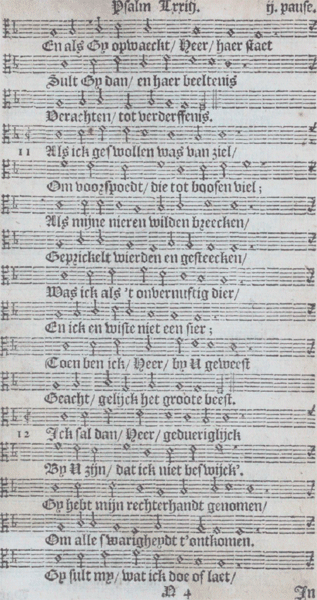 Psalm Lxxiij. ij. pause.
En als Gy opwaeckt/ Heer/ haer staet
Sult Gy dan/ en haer beeltenis
Verachten/ tot verderffenis.
11 Als ick geswollen was van ziel/
Om voorspoedt/ die tot boosen viel;
Als mijne nieren wilden breecken/
Geprickelt wierden en gesteecken/
Was ick als 't onvernuftig dier/
En ick en wiste niet een sier;
Toen ben ick/ Heer/ by U geweest
Geacht/ gelijck het groote beest.
12 Ick sal dan/ Heer/ geduriglijck
By U zijn/ dat ick niet beswijck'.
Gy hebt mijn rechterhandt genomen/
Om alle swarigheydt t'ontkomen.
Gy sult my/ wat ick doe of laet/
N 4 In